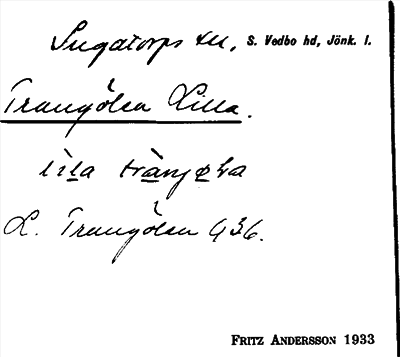 Ingatorps sn, S. Vedbo hd, Jönk. l.
Trangölen Lilla.
lìla tràŋøḷa
L. Trangölen G36.
FRITZ ANDERSSON 1933